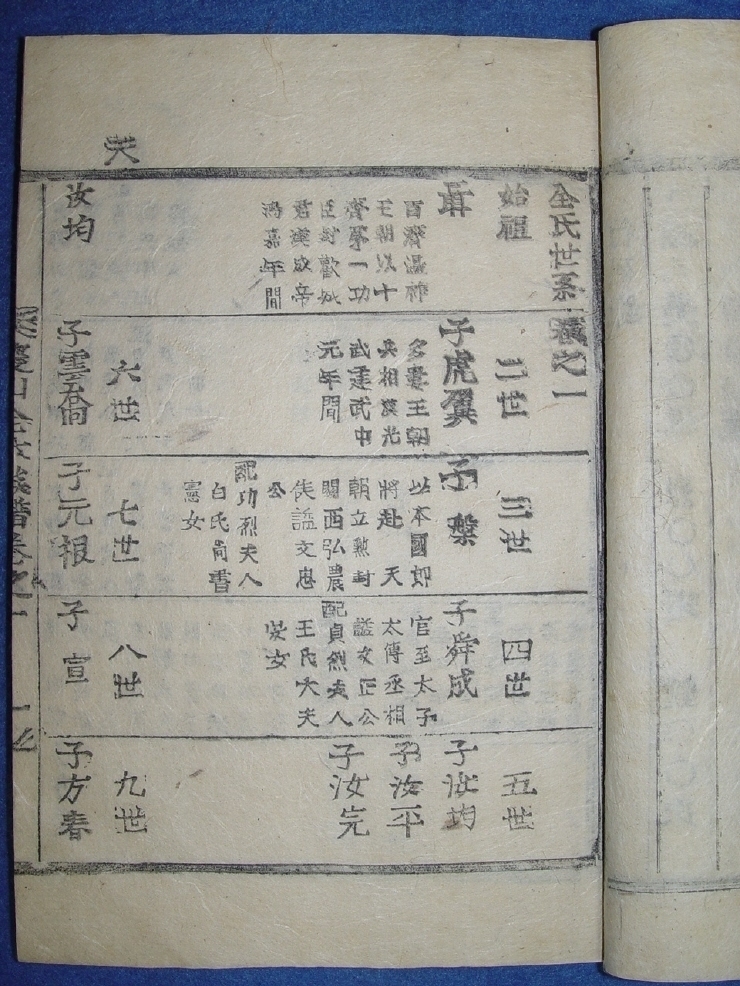 天
全氏世系卷之一
始祖
聶
百濟溫祚
王朝以十
濟第一功
臣封歡城
君漢成帝
鴻嘉年間
二世
子虎翼
多婁王朝
兵相漢光
武建武中
元年間
三世
子槃
以本國卿
將赴 天
朝立勲封
關西弘農
侯謚文忠
公
配功烈夫人
白氏尙書
憲女
四世
子舜成
官至太子
太傅丞相
謚文正公
配貞烈夫人
王氏大夫
女
五世
子汝均
子汝平
子汝完
汝均
六世
子雲喬
七世
子元報
八世
子宣
九世
子方春
慶山全氏族譜卷之一